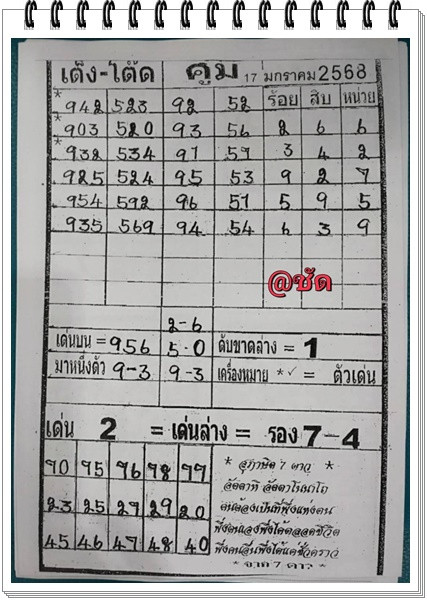 เต็ง-โต๊ด คูม 17 มกราคม 2568
*942 523 92 52 ร้อย สิบ หน่วย
*903 520 93 56 2 6 6
*932 534 97 59 3 4 2
925 524 95 53 9 2 7
954 592 96 57 5 9 5
935 569 94 54 6 3 9
@ชัด
2-6
เด่นบน = 956 5-0 ดับขาดล่าง = 1
มาหนึ่งตัว 9-3 9-3 เครื่องหมาย *✓ = ตัวเด่น
เด่น 2 = เด่นล่าง = รอง 7-4
70 75 76 78 77
23 25 27 29 20
45 46 47 48 40
* สุภาษิต 7 ดาว *
อัตตาหิ อัตตาโนนาโถ
ตนต้องเป็นที่พึ่งแห่งตน
พึ่งตนเองพึ่งได้ตลอดชีวิต
พึ่งคนอื่นพึ่งได้แค่ชั่วคราว
* จาก 7 ดาว *